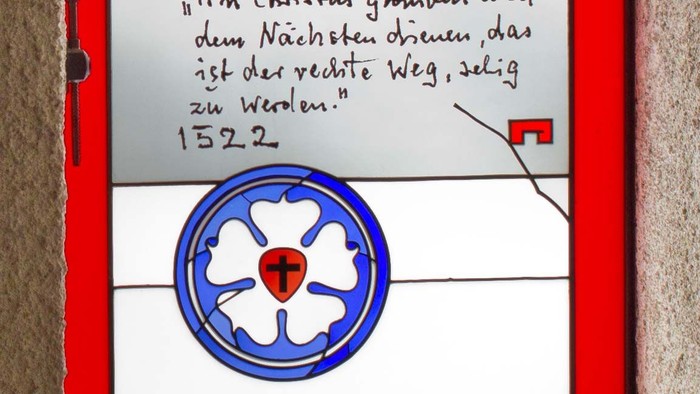 „An Christus glauben und
dem Nächsten dienen, das
ist der rechte Weg, selig
zu werden.“
1522